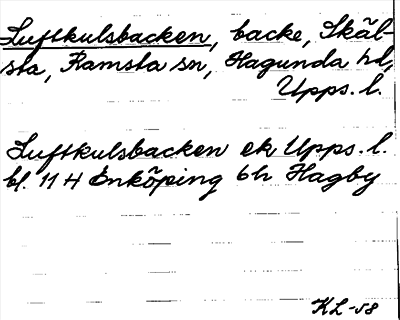 Luftkulsbacken, backe, Skäl-
sta, Ramsta sn, Hagunda hd,
Upps. l.
Luftkulsbacken ek Upps. l.
bl. 11 H Enköping 6h Hagby
KL -58